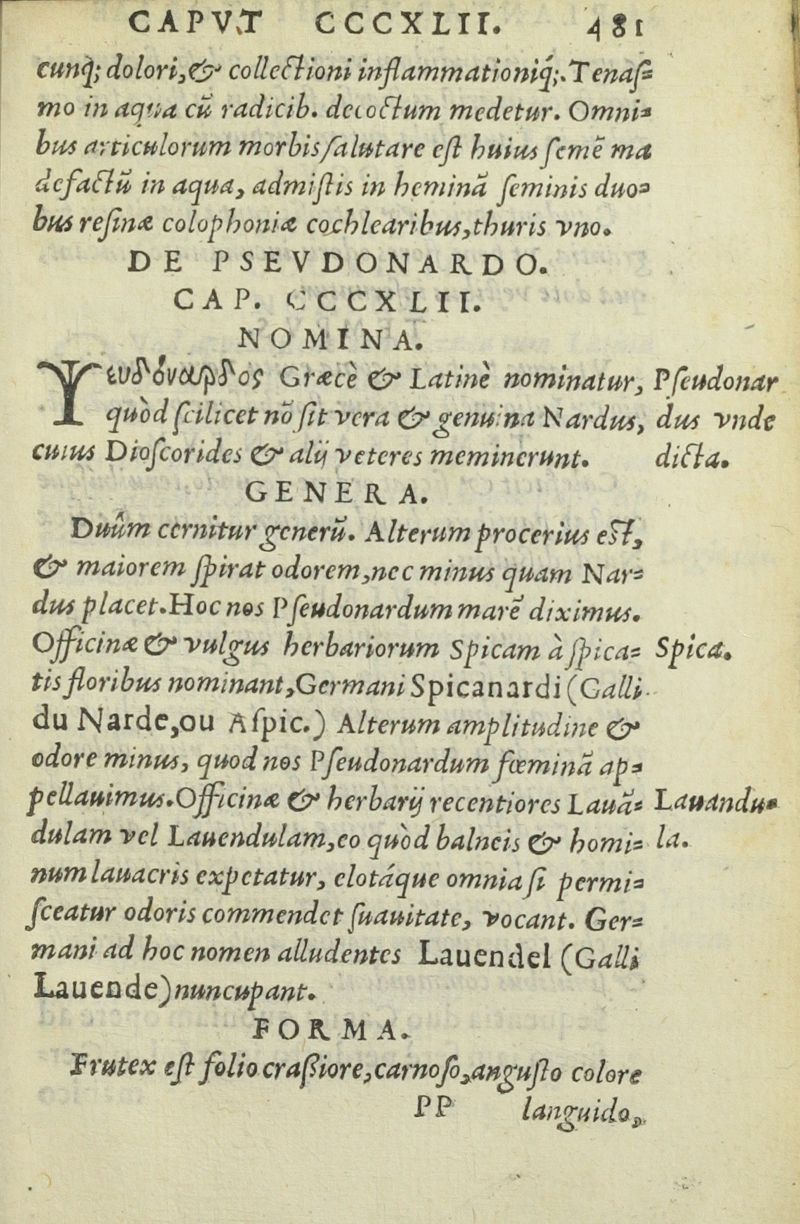 CAPVT CCCXLII. 481
cunq; dolori, & collectioni inflammationiq́;. Tenaſ=
mo in aqua cū radicib. decoctum medetur. Omni=
bus articulorum morbis ſalutare eſt huius ſemē ma
defactū in aqua, admiſtis in heminā ſeminis duo=
bus reſinæ colophoniæ cochlearibus, thuris vno.
DE PSEVDONARDO.
CAP. CCCXLII.
NOMINA.
Ψευδόναρδος Græcè & Latinè nominatur, Pſeudonar
quòd ſcilicet nō ſit vera & genuina Nardus, dus vnde
cuius Dioſcorides & alij veteres meminerunt. dicta.
GENERA.
Duûm cernitur generū. Alterum procerius eſt,
& maiorem ſpirat odorem, nec minus quam Nar=
dus placet. Hoc nos Pſeudonardum marē diximus.
Officinæ & vulgus herbariorum Spicam à ſpica= Spica.
tis floribus nominant, Germani Spicanardi (Galli
du Narde, ou Aſpic.) Alterum amplitudine &
odore minus, quod nos Pſeudonardum fœminā ap=
pellauimus. Officinæ & herbarij recentiores Lauā= Lauandu=
dulam vel Lauendulam, eo quòd balneis & homi= la.
num lauacris expetatur, elotáque omnia ſi permi=
ſceatur odoris commendet ſuauitate, vocant. Ger=
mani ad hoc nomen alludentes Lauendel (Galli
Lauende) nuncupant.
FORMA.
Frutex eſt folio craſsiore, carnoſo, anguſto colore
PP languido,